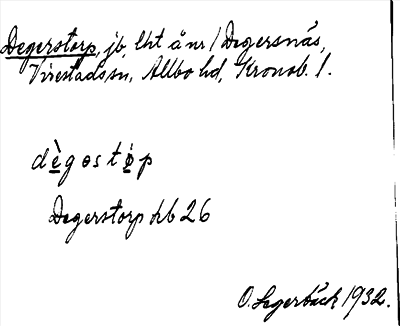 Degerstorp, jb, lht å nr 1 Degersnäs,
Virestads sn, Allbo hd, Kronob. l.
dègostòp
Degerstorp hb 26
O. Segerbäck 1932.